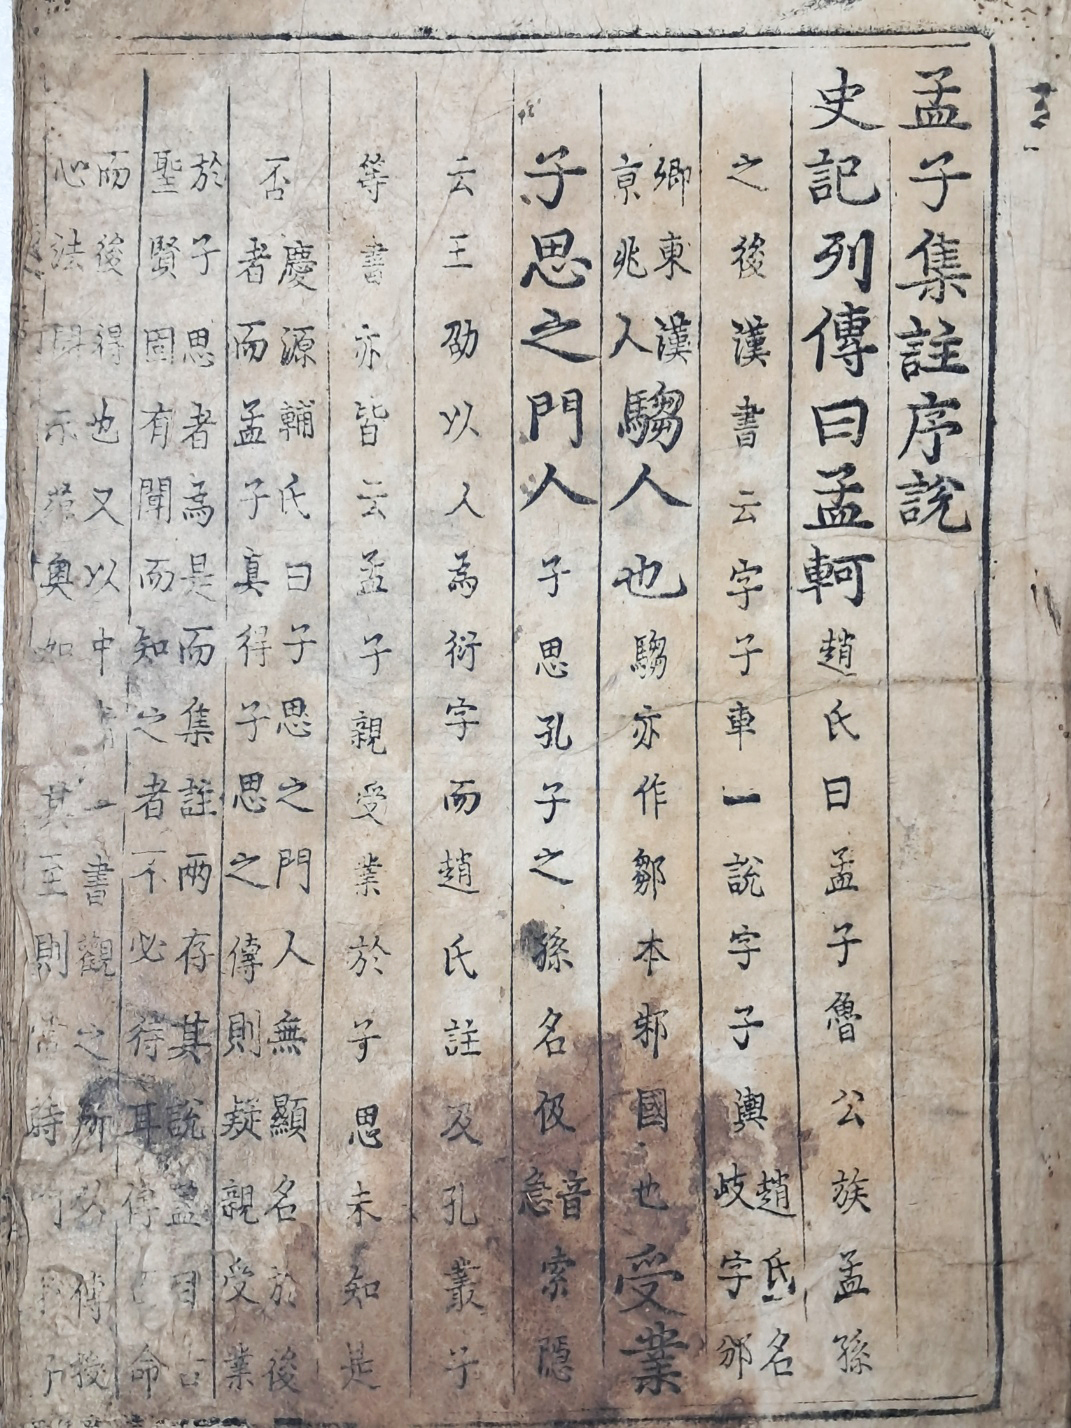 孟子集註序說
史記列傳曰孟軻趙氏曰孟子魯公族孟孫
之後漢書云字子車一說字子輿趙氏名
岐字邠
卿東漢
京兆人騶人也騶亦作鄒本邾國也受業
子思之門人子思孔子之孫名伋音
急索隱
云王劭以人為衍字而趙氏註及孔叢子
等書亦皆云孟子親受業於子思未知是
否慶源輔氏曰子思之門人無顯名於後
者而孟子真得子思之傳則疑親受業
於子思者為是而集註兩存其說蓋
聖賢固有聞而知之者不必待耳 命
而後得也又以中 一書觀之所以傳授
心法 示 奧如 其至則 時